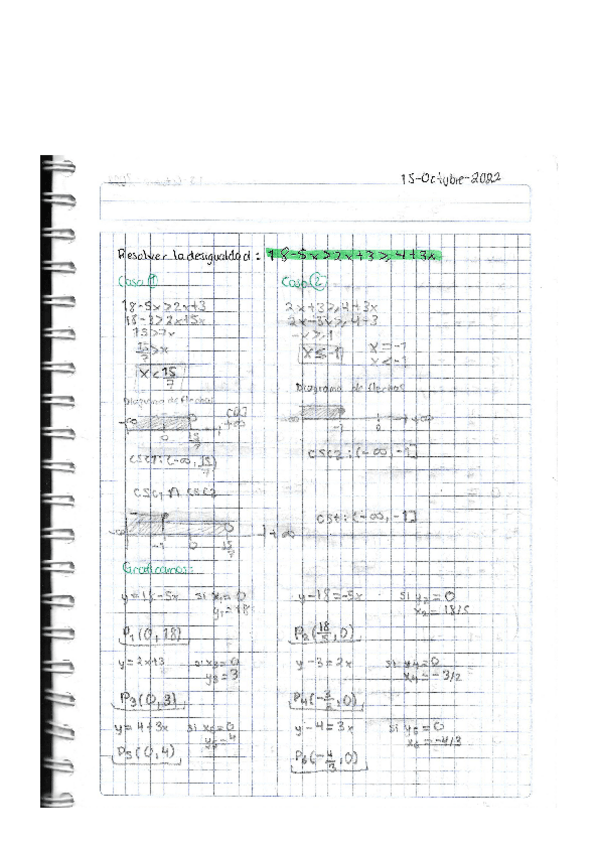 15-Octubre-2022
Resolver la desigualdad: 18-5x>2x+3≥4+3x
Caso ①
18-5x>2x+3
18-3>2x+5x
15>7x
15/7>x
x<15/7
Diagrama de flechas
-∞ 0 15/7 +∞
CSC1: (-∞, 15/7)
CSC1 ∩ CSC2
-∞ -1 0 15/7 +∞
Caso ②
2x+3≥4+3x
2x-3x≥4-3
-x≥1
x≤-1
x=-1
x<-1
Diagrama de flechas
-∞ -1 0 +∞
CSC2: (-∞,-1]
CSt: (-∞,-1]
Graficamos:
y=18-5x si x1=0
y1=18
P1(0,18)
y-18=-5x si y2=0
x2=18/5
P2(18/5,0)
y=2x+3 si x3=0
y3=3
P3(0,3)
y-3=2x si y4=0
x4=-3/2
P4(-3/2,0)
y=4+3x si x5=0
y5=4
P5(0,4)
y-4=3x si y6=0
x6=-4/3
P6(-4/3,0)